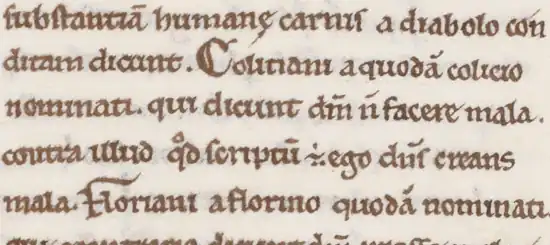 substantiā humanę carnis a diabolo con
ditam dicunt. Colitiani a quodā colicio
nominati. qui dicunt dm̄ n̄ facere mala.
contra illud qd̊ scriptū ÷ ego dn̄s creans
mala. Floriani a florino quodā nominati